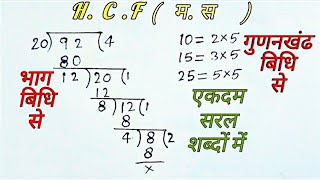 H. C. F ( म. स )
20) 92 (4
80
12) 20 (1
12
8) 12 (1
8
4) 8 (2
8
×
भाग
बिधि
से
10 = 2×5
15 = 3×5
25 = 5×5
गुणनखंढ
बिधि
से
एकदम
सरल
शब्दों में